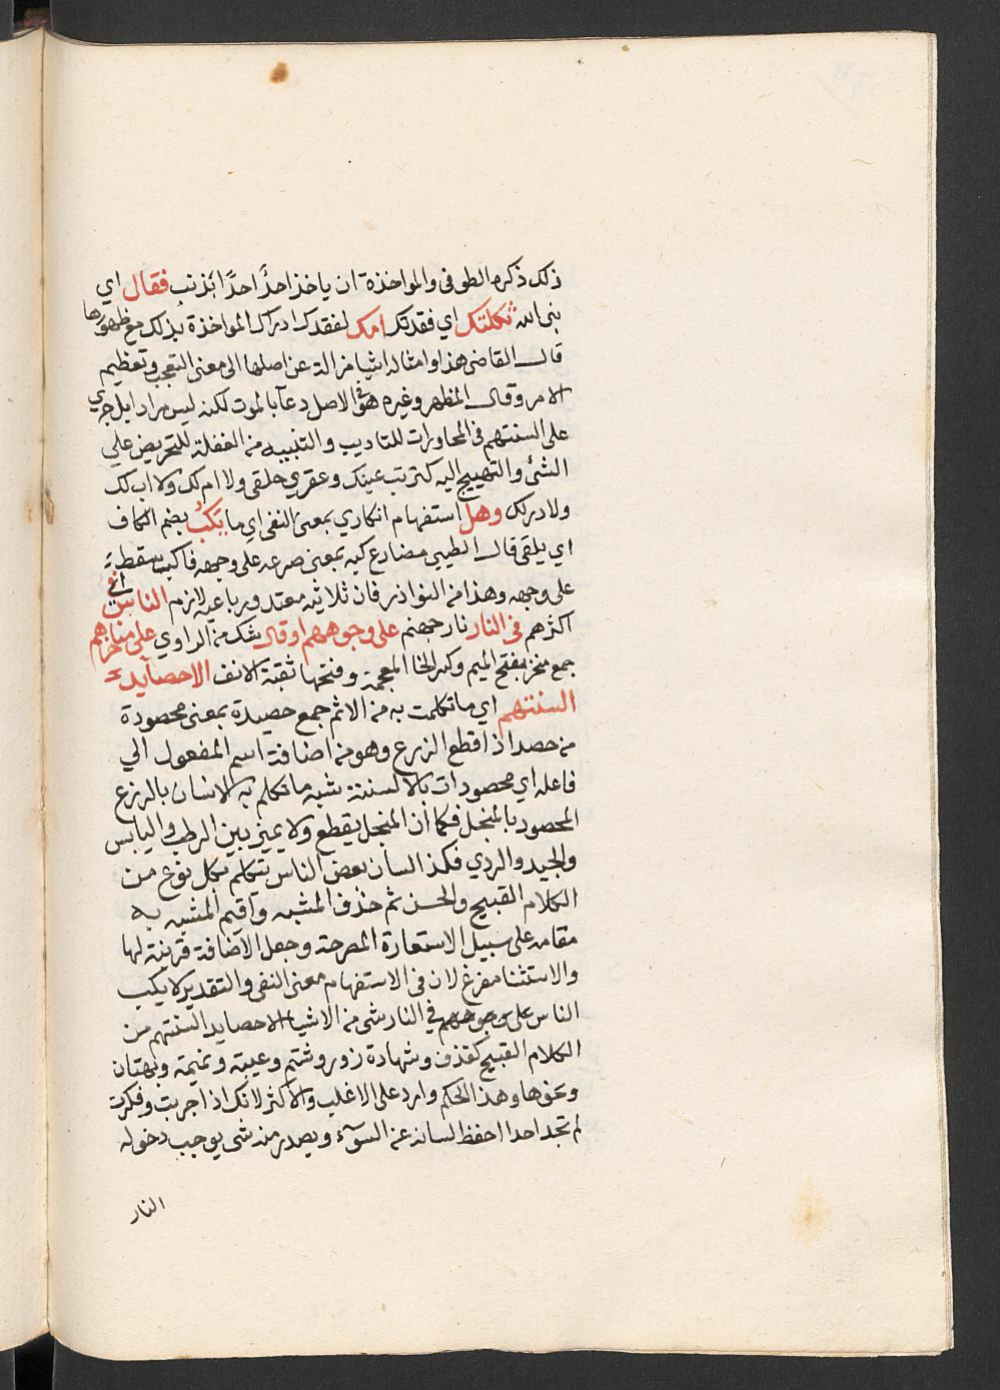 ذلك ذكره الطوفي والمواخذة ان ياخذ احدٌ احدًا بذنب فقال اي
نبي الله ثكلتك اي فقدتك امك لفقدك ادراك المواخذة بذلك مع ظهورها
قال القاضي هذا وامثاله اشيا مزالة عن اصلها الى معنى التعجب وتعظيم
الامر وقال المظهر وغيره هو في الاصل دعآ بالموت لكنه ليس مرادا بل جرى
على السنتهم في المحاورات للتاديب والتنبيه من الغفلة للتحريض علي
الشئ والتهييج اليه كتربت يمينك وعقرى حلقى ولا ام لك ولا اب لك
ولا در لك وهل استفهام انكاري بمعنى النفي اي ما يَكُبُّ بضم الكاف
اي يلقى قال الطيبي مضارع كبه بمعنى صرعه على وجهه فاكب سقط
على وجهه وهذا من النوادر فان ثلاثيه معتد ورباعيه لازم الناس اي
اكثرهم في النار نار جهنم على وجوههم او قال شك من الراوي على مناخرهم
جمع منخر بفتح الميم وكسر الخا المعجمة وفتحها ثقبة الانف الا حصآيد
السنتهم اي ما تكلمت به من الاثم جمع حصيدة بمعنى محصودة
من حصد اذا قطع الزرع وهو من اضافة اسم المفعول الي
فاعله اي محصودات بالالسنة شبه ما تكلم به الانسان بالزرع
المحصود بالمنجل فكما ان المنجل يقطع ولا يميز بين الرطب واليابس
والجيد والردي فكذا لسان بعض الناس يتكلم بكل نوع من
الكلام القبيح والحسن ثم حذف المشبه واقيم المشبه به
مقامه على سبيل الاستعارة المصرحة وجعل الاضافة قرينة لها
والاستثنا مفرغ لان في الاستفهام معنى النفي والتقدير لا يكب
الناس على وجوههم في النار شئ من الاشيا الا حصايد السنتهم من
الكلام القبيح كقذف وشهادة زور وشتم وغيبة ونميمة وبهتان
ونحوها وهذا الحكم وارد على الاغلب والاكثر لانك اذا جربت وفكرت
لم تجد احدا احفظ لسانه عن السوء ويصدر منه شي يوجب دخوله
النار